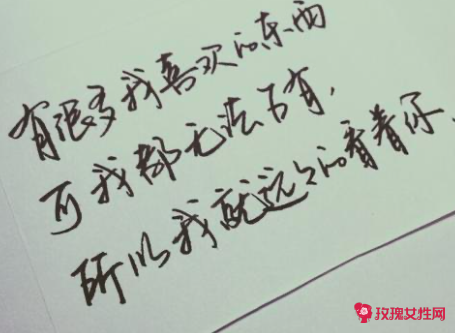 有很多我喜买的东西
可我都无法占有，
所以我就远远的看着你、
玫瑰女性网